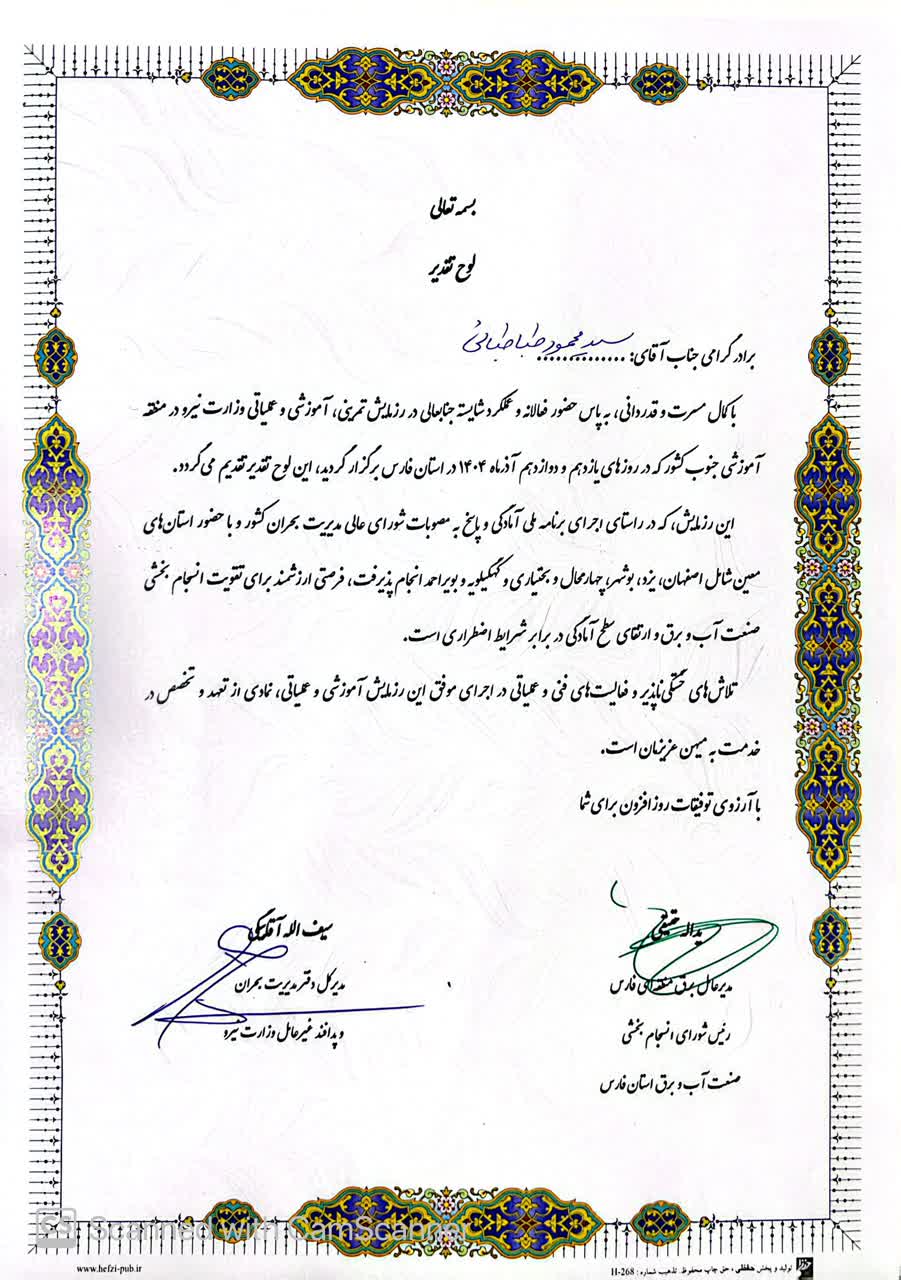 بسمه تعالی
لوح تقدیر
برادر گرامی جناب آقای: سید محمود طباطبائی
با کمال مسرت و قدردانی، به پاس حضور فعالانه و عملکرد شایسته جنابعالی در رزمایش تمرینی، آموزشی و عملیاتی وزارت نیرو در منطقه
آموزشی جنوب کشور که در روزهای یازدهم و دوازدهم آذرماه ۱۴۰۴ در استان فارس برگزار گردید، این لوح تقدیر تقدیم می‌گردد.
این رزمایش، که در راستای اجرای برنامه ملی آمادگی و پاسخ به مصوبات شورای عالی مدیریت بحران کشور و با حضور استان‌های
معین شامل اصفهان، یزد، بوشهر، چهارمحال و بختیاری و کهگیلویه و بویراحمد انجام پذیرفت، فرصتی ارزشمند برای تقویت انسجام بخشی
صنعت آب و برق و ارتقای سطح آمادگی در برابر شرایط اضطراری است.
تلاش‌های خستگی‌ناپذیر و فعالیت‌های فنی و عملیاتی در اجرای موفق این رزمایش آموزشی و عملیاتی، نمادی از تعهد و تخصص در
خدمت به میهن عزیزمان است.
با آرزوی توفیقات روزافزون برای شما
یداله حقیقی
مدیرعامل برق منطقه‌ای فارس
رئیس شورای انسجام بخشی
صنعت آب و برق استان فارس
سیف اله آقابیگی
مدیرکل دفتر مدیریت بحران
و پدافند غیرعامل وزارت نیرو
Scanned with CamScanner
www.hefzi-pub.ir
تولید و پخش حفظی، حق چاپ محفوظ. تذهیب شماره: H-268